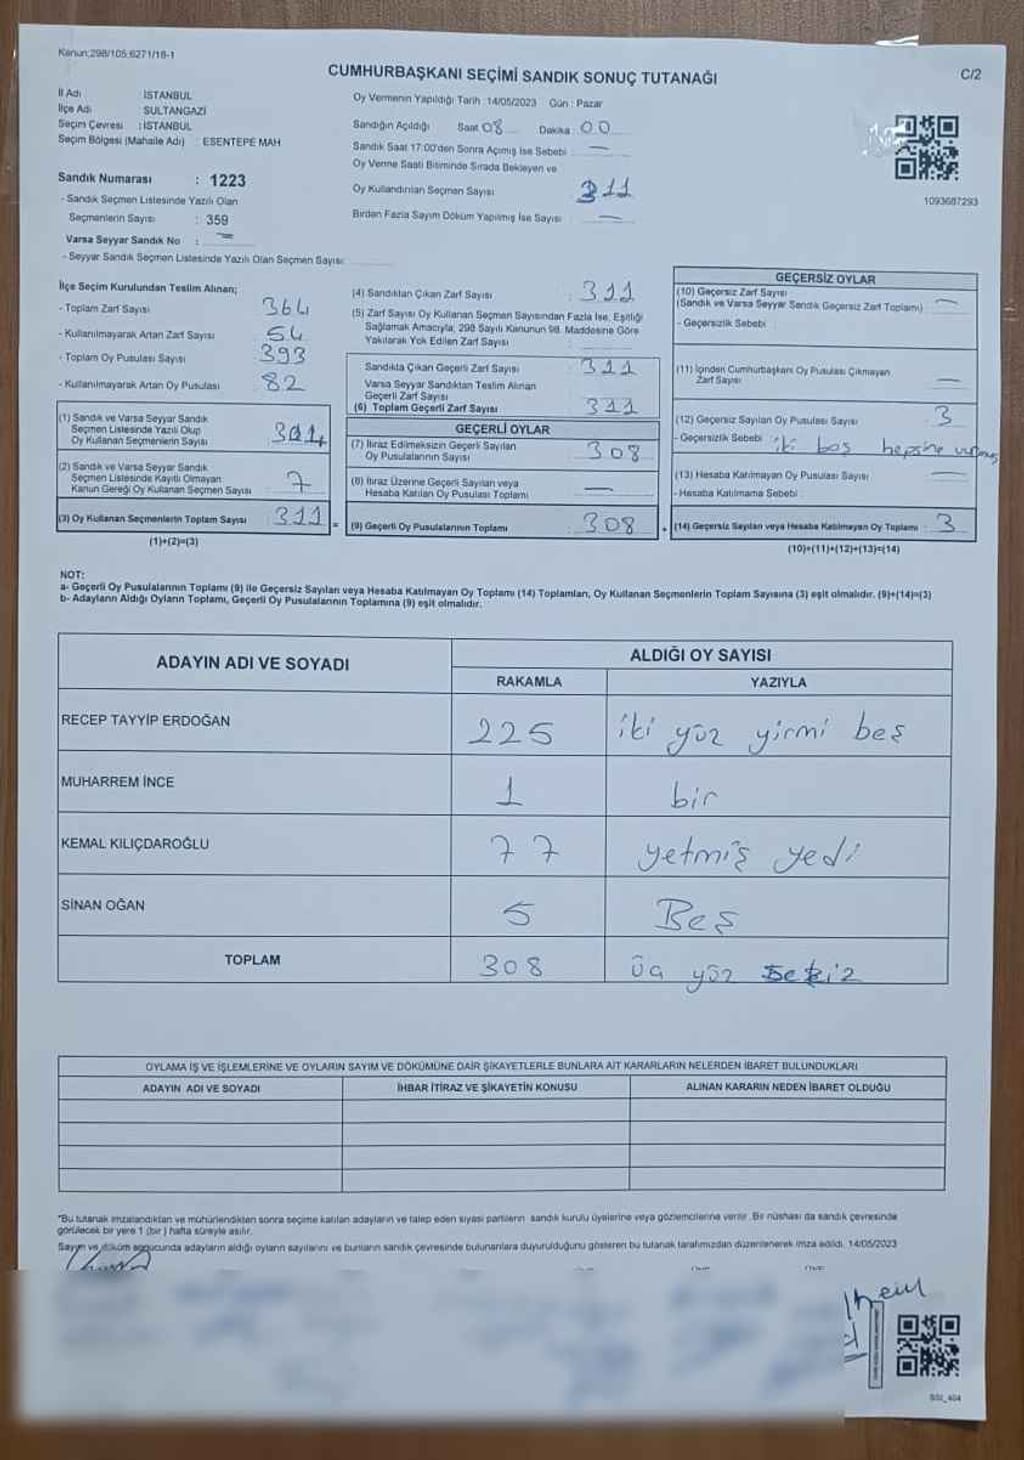 Kanun:298/105;6271/18-1
CUMHURBAŞKANI SEÇİMİ SANDIK SONUÇ TUTANAĞI
C/2
İl Adı : İSTANBUL
İlçe Adı : SULTANGAZİ
Seçim Çevresi : İSTANBUL
Seçim Bölgesi (Mahalle Adı) : ESENTEPE MAH
Oy Vermenin Yapıldığı Tarih : 14/05/2023 Gün : Pazar
Sandığın Açıldığı Saat 08 Dakika : 00
Sandık Saat 17:00'den Sonra Açılmış İse Sebebi : —
Oy Verme Saati Bitiminde Sırada Bekleyen ve
Oy Kullandırılan Seçmen Sayısı 311
Birden Fazla Sayım Döküm Yapılmış İse Sayısı : —
1093687293
Sandık Numarası : 1223
- Sandık Seçmen Listesinde Yazılı Olan
Seçmenlerin Sayısı : 359
Varsa Seyyar Sandık No : —
- Seyyar Sandık Seçmen Listesinde Yazılı Olan Seçmen Sayısı:
İlçe Seçim Kurulundan Teslim Alınan;
- Toplam Zarf Sayısı : 364
- Kullanılmayarak Artan Zarf Sayısı : 54
- Toplam Oy Pusulası Sayısı : 393
- Kullanılmayarak Artan Oy Pusulası : 82
(1) Sandık ve Varsa Seyyar Sandık
Seçmen Listesinde Yazılı Olup
Oy Kullanan Seçmenlerin Sayısı : 304
(2) Sandık ve Varsa Seyyar Sandık
Seçmen Listesinde Kayıtlı Olmayan
Kanun Gereği Oy Kullanan Seçmen Sayısı : 7
(3) Oy Kullanan Seçmenlerin Toplam Sayısı : 311 =
(1)+(2)=(3)
(4) Sandıktan Çıkan Zarf Sayısı : 311
(5) Zarf Sayısı Oy Kullanan Seçmen Sayısından Fazla İse, Eşitliği
Sağlamak Amacıyla, 298 Sayılı Kanunun 98. Maddesine Göre
Yakılarak Yok Edilen Zarf Sayısı :
Sandıkta Çıkan Geçerli Zarf Sayısı : 311
Varsa Seyyar Sandıktan Teslim Alınan
Geçerli Zarf Sayısı :
(6) Toplam Geçerli Zarf Sayısı : 311
GEÇERLİ OYLAR
(7) İtiraz Edilmeksizin Geçerli Sayılan
Oy Pusulalarının Sayısı : 308
(8) İtiraz Üzerine Geçerli Sayılan veya
Hesaba Katılan Oy Pusulası Toplamı : —
(9) Geçerli Oy Pusulalarının Toplamı : 308 +
GEÇERSİZ OYLAR
(10) Geçersiz Zarf Sayısı :
(Sandık ve Varsa Seyyar Sandık Geçersiz Zarf Toplamı) —
- Geçersizlik Sebebi :
(11) İçinden Cumhurbaşkanı Oy Pusulası Çıkmayan
Zarf Sayısı : —
(12) Geçersiz Sayılan Oy Pusulası Sayısı : 3
- Geçersizlik Sebebi : iki boş hepsine
(13) Hesaba Katılmayan Oy Pusulası Sayısı : —
- Hesaba Katılmama Sebebi :
(14) Geçersiz Sayılan veya Hesaba Katılmayan Oy Toplamı : 3
(10)+(11)+(12)+(13)=(14)
NOT:
a- Geçerli Oy Pusulalarının Toplamı (9) ile Geçersiz Sayılan veya Hesaba Katılmayan Oy Toplamı (14) Toplamları, Oy Kullanan Seçmenlerin Toplam Sayısına (3) eşit olmalıdır. (9)+(14)=(3)
b- Adayların Aldığı Oyların Toplamı, Geçerli Oy Pusulalarının Toplamına (9) eşit olmalıdır.
ADAYIN ADI VE SOYADI ALDIĞI OY SAYISI
RAKAMLA YAZIYLA
RECEP TAYYİP ERDOĞAN 225 iki yüz yirmi beş
MUHARREM İNCE 1 bir
KEMAL KILIÇDAROĞLU 77 yetmiş yedi
SİNAN OĞAN 5 Beş
TOPLAM 308 üç yüz sekiz
OYLAMA İŞ VE İŞLEMLERİNE VE OYLARIN SAYIM VE DÖKÜMÜNE DAİR ŞİKAYETLERLE BUNLARA AİT KARARLARIN NELERDEN İBARET BULUNDUKLARI
ADAYIN ADI VE SOYADI İHBAR İTİRAZ VE ŞİKAYETİN KONUSU ALINAN KARARIN NEDEN İBARET OLDUĞU
*Bu tutanak imzalandıktan ve mühürlendikten sonra seçime katılan adayların ve talep eden siyasi partilerin sandık kurulu üyelerine veya gözlemcilerine verilir. Bir nüshası da sandık çevresinde
görülecek bir yere 1 (bir) hafta süreyle asılır.
Sayım ve döküm sonucunda adayların aldığı oyların sayılarını ve bunların sandık çevresinde bulunanlara duyurulduğunu gösteren bu tutanak tarafımızdan düzenlenerek imza edildi. 14/05/2023